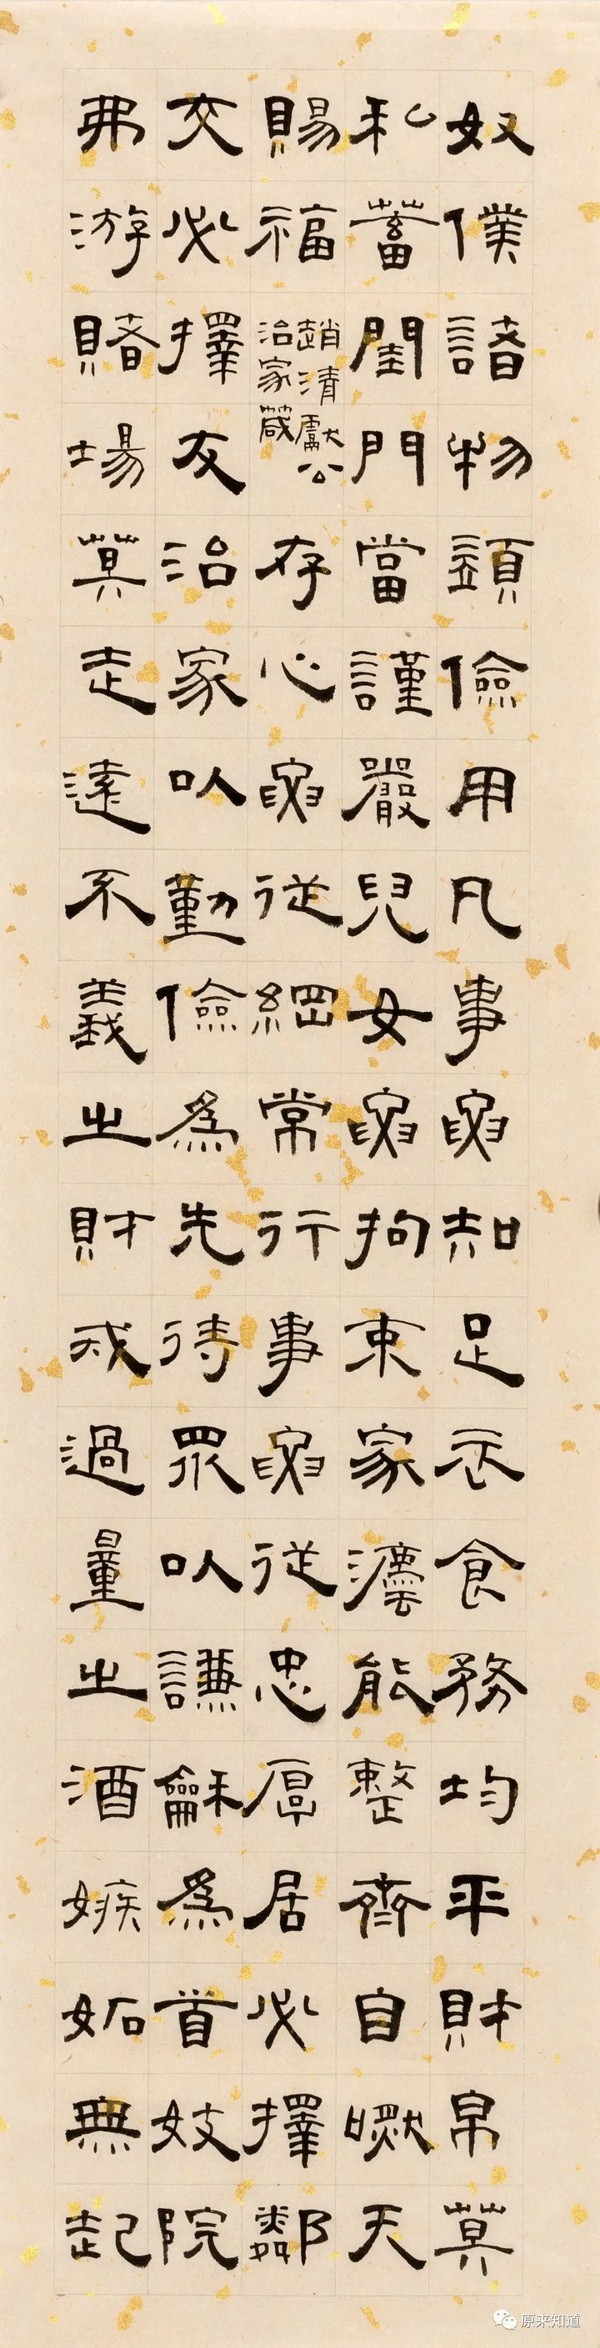 奴僕諸物須儉用凡事要知足衣食務均平財帛莫
私蓄閨門當謹嚴兒女要拘束家灋能整齊自天
賜福
趙清獻公
治家箴
存心要從綱常行事要從忠厚居必擇鄰
交必擇友治家以勤儉為先待眾以謙龢為首妓院
弗游賭場莫走遠不義之財戒過量之酒嫉妬無起
原来知道